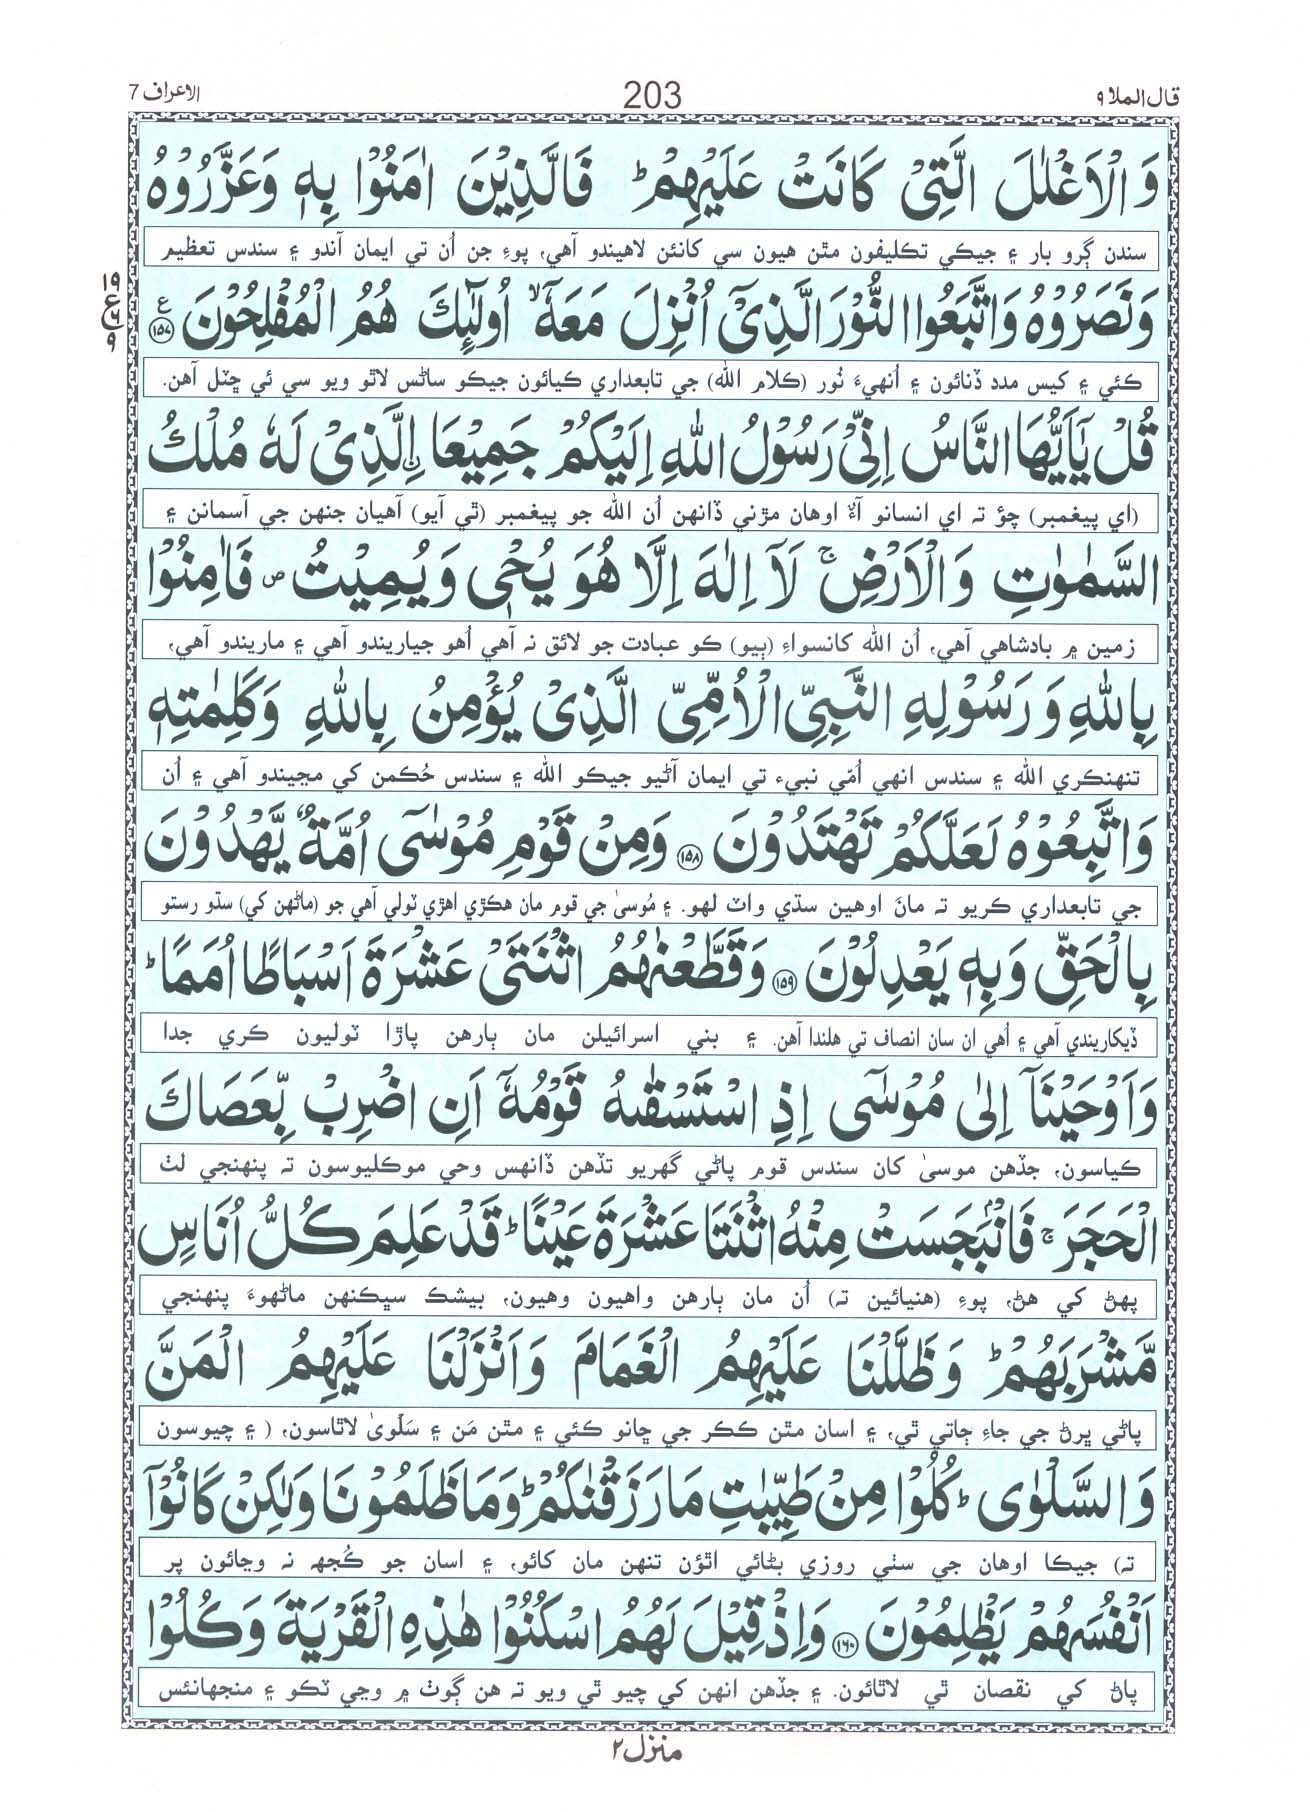 الاعراف 7
203
قال الملا ۹
وَالْاَغْلٰلَ الَّتِیْ كَانَتْ عَلَیْهِمْ ؕ فَالَّذِیْنَ اٰمَنُوْا بِهٖ وَعَزَّرُوْهُ
سندن ڳرو بار ۽ جيڪي تڪليفون مٿن هيون سي کانئن لاهيندو آهي، پوءِ جن اُن تي ايمان آندو ۽ سندس تعظيم
وَنَصَرُوْهُ وَاتَّبَعُوا النُّوْرَ الَّذِیْۤ اُنْزِلَ مَعَهٗۤ ۙ اُولٰٓىِٕكَ هُمُ الْمُفْلِحُوْنَ ﴿۱۵۷﴾ ع
۱۹
ع
۹
ڪئي ۽ کيس مدد ڏنائون ۽ اُنهيءَ نُور (ڪلام الله) جي تابعداري ڪيائون جيڪو ساڻس لاٿو ويو سي ئي ڇٽل آهن.
قُلْ یٰۤاَیُّهَا النَّاسُ اِنِّیْ رَسُوْلُ اللّٰهِ اِلَیْكُمْ جَمِیْعَا ِ۟الَّذِیْ لَهٗ مُلْكُ
(اي پيغمبر) چؤ تہ اي انسانو آءٌ اوهان مڙني ڏانهن اُن الله جو پيغمبر (ٿي آيو) آهيان جنهن جي آسمانن ۽
السَّمٰوٰتِ وَالْاَرْضِ ۚ لَاۤ اِلٰهَ اِلَّا هُوَ یُحْیٖ وَیُمِیْتُ ۪ فَاٰمِنُوْا
زمين ۾ بادشاهي آهي، اُن الله کانسواءِ (ٻيو) ڪو عبادت جو لائق نہ آهي اُهو جياريندو آهي ۽ ماريندو آهي،
بِاللّٰهِ وَرَسُوْلِهِ النَّبِیِّ الْاُمِّیِّ الَّذِیْ یُؤْمِنُ بِاللّٰهِ وَكَلِمٰتِهٖ
تنهنڪري الله ۽ سندس انهي اُمّي نبيء تي ايمان آڻيو جيڪو الله ۽ سندس حُڪمن کي مڃيندو آهي ۽ اُن
وَاتَّبِعُوْهُ لَعَلَّكُمْ تَهْتَدُوْنَ ﴿۱۵۸﴾ وَمِنْ قَوْمِ مُوْسٰۤی اُمَّةٌ یَّهْدُوْنَ
جي تابعداري ڪريو تہ مانَ اوهين سڌي واٽ لهو. ۽ مُوسىٰ جي قوم مان هڪڙي اهڙي ٽولي آهي جو (ماڻهن کي) سڌو رستو
بِالْحَقِّ وَبِهٖ یَعْدِلُوْنَ ﴿۱۵۹﴾ وَقَطَّعْنٰهُمُ اثْنَتَیْ عَشْرَةَ اَسْبَاطًا اُمَمًا ؕ
ڏيکاريندي آهي ۽ اُهي ان سان انصاف تي هلندا آهن. ۽ بني اسرائيلن مان ٻارهن پاڙا ٽوليون ڪري جدا
وَاَوْحَیْنَاۤ اِلٰی مُوْسٰۤی اِذِ اسْتَسْقٰىهُ قَوْمُهٗۤ اَنِ اضْرِبْ بِّعَصَاكَ
ڪياسون، جڏهن موسىٰ کان سندس قوم پاڻي گهريو تڏهن ڏانهس وحي موڪليوسون تہ پنهنجي لٺ
الْحَجَرَ ۚ فَانْۢبَجَسَتْ مِنْهُ اثْنَتَا عَشْرَةَ عَیْنًا ؕ قَدْ عَلِمَ كُلُّ اُنَاسٍ
پهڻ کي هڻ، پوءِ (هنيائين تہ) اُن مان ٻارهن واهيون وهيون، بيشڪ سڀڪنهن ماڻهوءَ پنهنجي
مَّشْرَبَهُمْ ؕ وَظَلَّلْنَا عَلَیْهِمُ الْغَمَامَ وَاَنْزَلْنَا عَلَیْهِمُ الْمَنَّ
پاڻي ڀرڻ جي جاءِ ڄاتي ٿي، ۽ اسان مٿن ڪڪر جي ڇانو ڪئي ۽ مٿن مَن ۽ سَلْوىٰ لاٿاسون، ( ۽ چيوسون
وَالسَّلْوٰی ؕ كُلُوْا مِنْ طَیِّبٰتِ مَا رَزَقْنٰكُمْ ؕ وَمَا ظَلَمُوْنَا وَلٰكِنْ كَانُوْۤا
تہ) جيڪا اوهان جي سٺي روزي بڻائي اٿؤن تنهن مان کائو، ۽ اسان جو ڪُجهہ نہ وڃائون پر
اَنْفُسَهُمْ یَظْلِمُوْنَ ﴿۱۶۰﴾ وَاِذْ قِیْلَ لَهُمُ اسْكُنُوْا هٰذِهِ الْقَرْیَةَ وَكُلُوْا
پاڻ کي نقصان ٿي لاٿائون. ۽ جڏهن انهن کي چيو ٿي ويو تہ هن ڳوٺ ۾ وڃي ٽڪو ۽ منجهانئس
منزل ۲